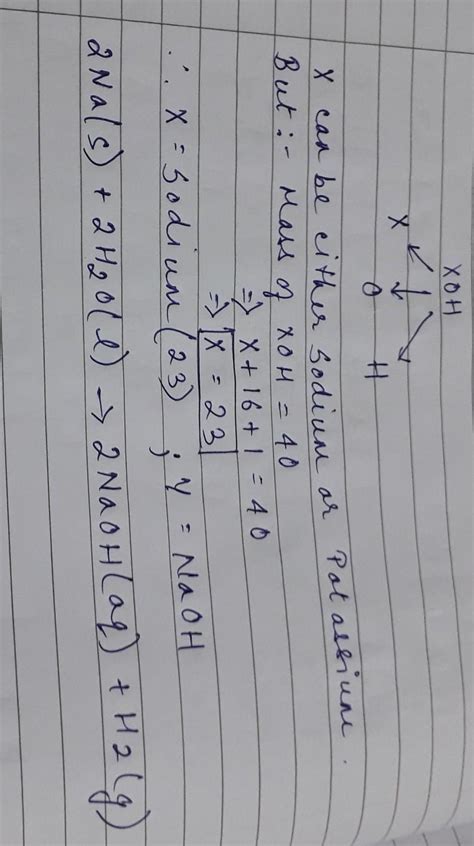 XOH
X O H
X can be either Sodium or Potassium.
But :- Mass of XOH = 40
=> X + 16 + 1 = 40
=> X = 23
∴ X = Sodium (23) ; Y = NaOH
2Na(s) + 2H2O(l) → 2NaOH(aq) + H2(g)